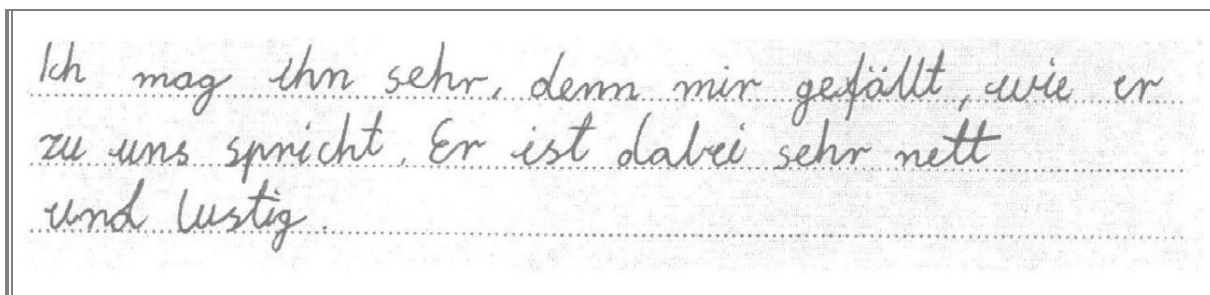 Ich mag ihn sehr, denn mir gefällt, wie er
zu uns spricht. Er ist dabei sehr nett
und lustig.